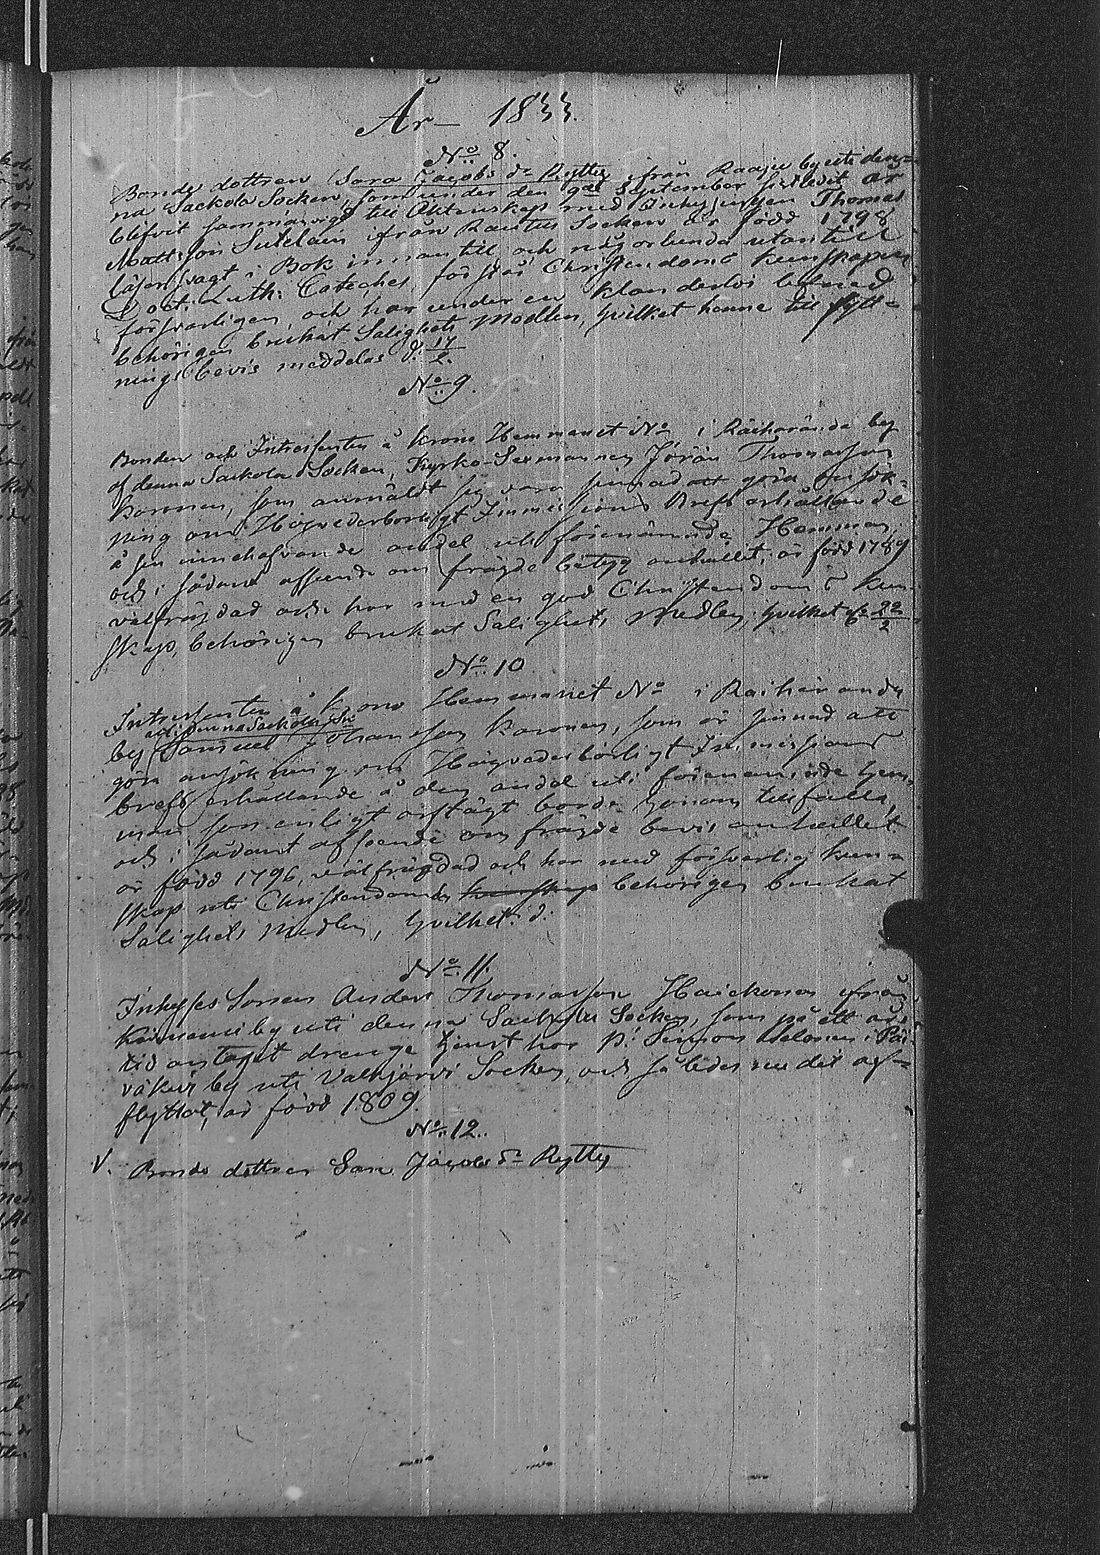 År 1833.
No 8.
Bonde dottren Sara Jacobs dr Rytty från Raaju by uti den-
na Sackola Socken, som under den 9de September sistledit år
blifvit sammanvigd till Äktenskap med Thomas
Mattsson Sutelain ifrån Rautus Socken är född 1798
läser svagt i Bok innan till och någorlunda utantill
Doct: Luth: Cateches förstår Christendoms kunskapen
försvarligen, och har under en klanderlös lefnad
behörigen brukat Salighets Medlen, hvilket henne till flytt-
nings bevis meddelas d. 17/2.
No 9.
Bonden och Intressenten å krono Hemmanet No i Räiharanda by
af denna Sackola Socken, Kyrko-Sexmannen Jöran Thomasson
Karonen, som anmäldt sig vara sinnad att göra ansök-
ning om Högvederbörligt Immissions Bref erhållande
å sin innehafvande andel uti förenämnde Hemman,
och i sådant afseende om frägde betyg anhållit, är född 1789
välfrägdad och har med en god Christendoms kun-
skap, behörigen brukat Salighets Medlen, hvilket 22/2
No 10
Intressenten å krono Hemmanet No i Raiharanda
uti denna Sackola Sn
by Samuel Johansson Karonen, som är sinnad att
göra ansökning om Högvederbörligt Immissions
brefs erhållande å den andel uti förenämnde hem-
man som enligt borde honom tillfalla,
och i sådant afseende om frägde bevis anhållit
är född 1796, välfrägdad och har med försvarlig kun-
skap uti Christendoms kunskap behörigen brukat
Salighets Medlen, hvilket d.
No 11.
Inhyses Sonen Anders Thomasson Haickonen från
by uti denna Sackola Socken, som på ett års
tid antagit drenge tjenst hos Simon i Päi-
väkivi by uti Valkjärvi Socken, och således nu dit af-
flyttat, är född 1809.
No 12.
V. Bonde dottren Sara Jacobs dr Rytty